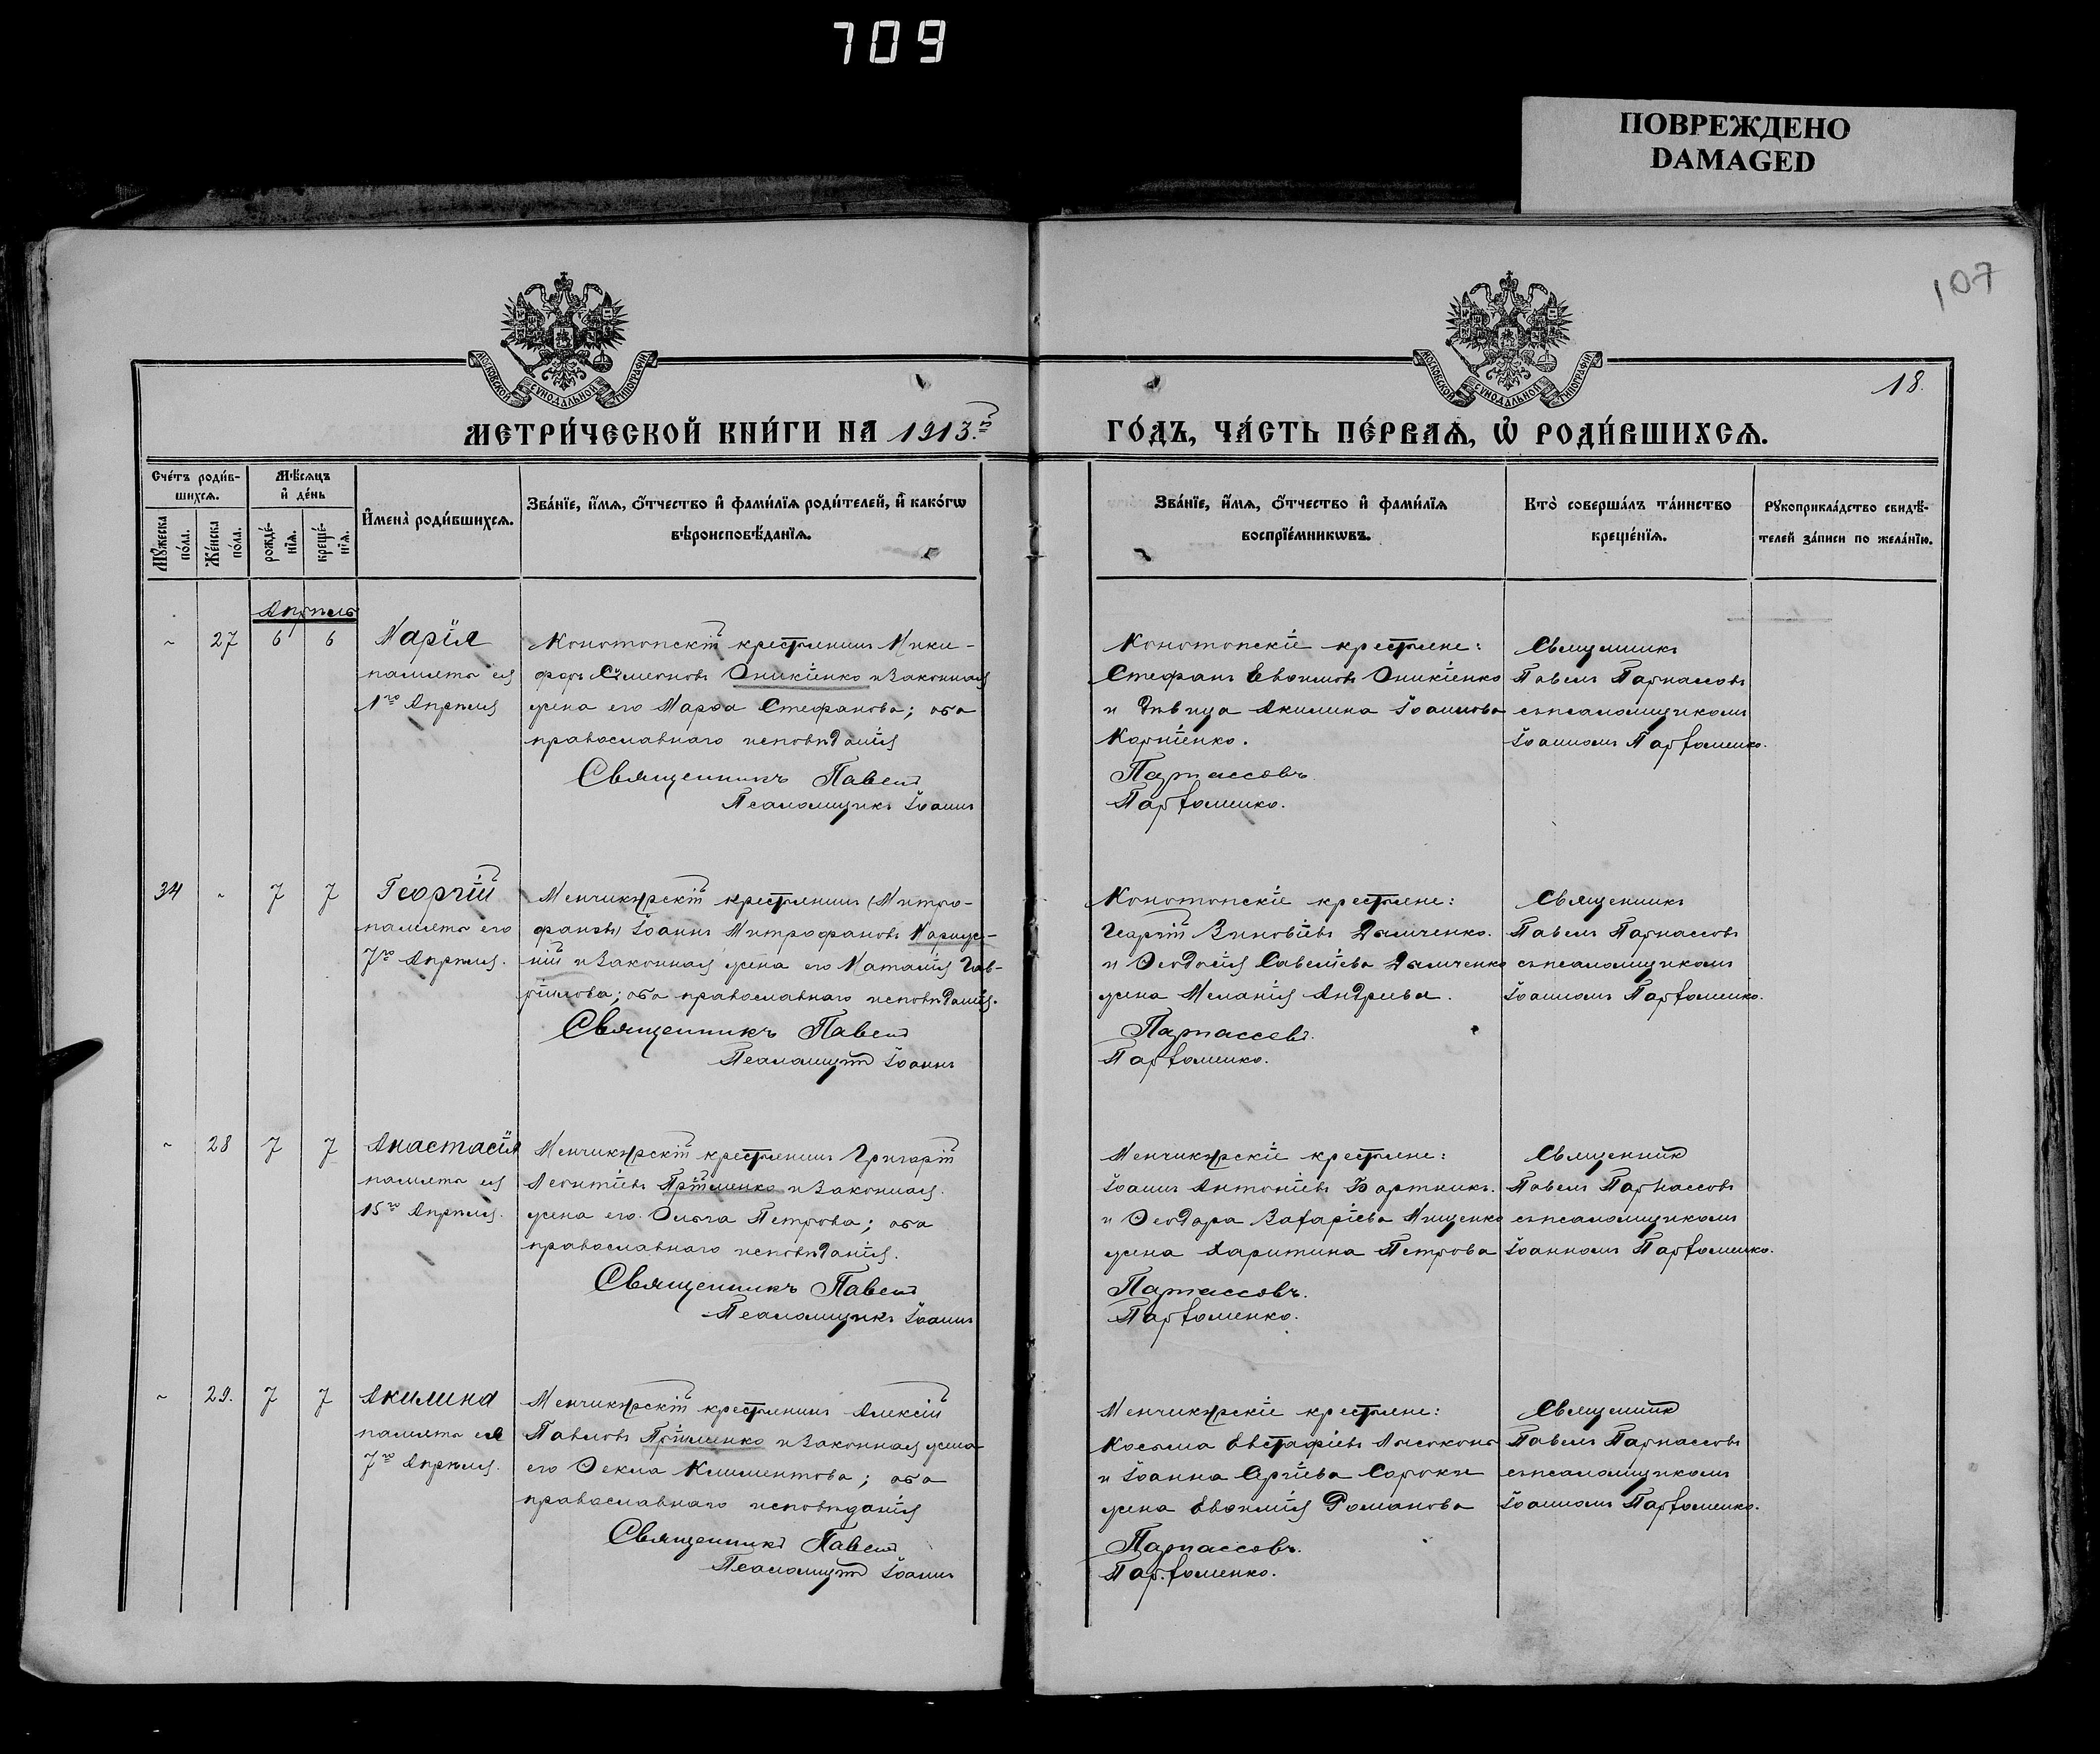 709
ПОВРЕЖДЕНО
DAMAGED
107
18.
МОСКОВСКОЙ СУНОДАЛЬНОЙ ТИПОГРАФІИ
МОСКОВСКОЙ СУНОДАЛЬНОЙ ТИПОГРАФІИ
МЕТРИ́ЧЕСКОЙ КНИ́ГИ НА 1913.й ГО́ДЪ, ЧА́СТЬ ПЕ́РВАѦ, Ѽ РОДИ́ВШИХСѦ.
Сче́тъ роди́в-
шихсѧ.
Мѣ́сѧцъ
и҆ де́нь
Мꙋ́жеска
по́ла.
Же́нска
по́ла.
рожде́-
нїѧ.
креще́-
нїѧ.
И҆мена̀ роди́вшихсѧ.
Зва́нїе, и҆́мѧ, ѻ҆́тчество и҆ фами́лїѧ роди́телей, и҆ како́гѡ
вѣроисповѣ́данїѧ.
Зва́нїе, и҆́мѧ, ѻ҆́тчество и҆ фами́лїѧ
воспрїе́мникѡвъ.
Кто̀ соверша́лъ та́инство
креще́нїѧ.
Рꙋкоприкла́дство свидѣ́-
телей за́писи по жела́нїю.
Апрѣль
~ 27 6 6 Марія
память ея
1го Апрѣля
Конотопскій крестьянинъ Ники-
форъ Симеоновъ Оникіенко и законная
жена его Марѳа Стефанова; оба
православнаго исповѣданія
Священникъ Павелъ
Псаломщикъ Іоаннъ
Конотопскіе крестьяне:
Стефанъ Евѳимовъ Оникіенко
и дѣвица Акилина Іоаннова
Корніенко.
Парнассовъ.
Пархоменко.
Священникъ
Павелъ Парнассовъ
съ псаломщикомъ
Іоанномъ Пархоменко.
34 ~ 7 7 Георгій
память его
7го Апрѣля.
Менчикурскій крестьянинъ (Митро-
фановъ) Іоаннъ Митрофановъ
и законная жена его Наталія Гав-
ріилова; оба православнаго исповѣданія.
Священникъ Павелъ
Псаломщикъ Іоаннъ
Конотопскіе крестьяне:
Георгій Зиновіевъ Дямченко.
и Ѳеодосія Савеліева Дямченко
жена Меланія Андреева.
Парнассовъ.
Пархоменко.
Священникъ
Павелъ Парнассовъ
съ псаломщикомъ
Іоанномъ Пархоменко.
~ 28 7 7 Анастасія
память ея
15го Апрѣля.
Менчикурскій крестьянинъ Григорій
Леонтіевъ Пріименко и законная
жена его Ольга Петрова; оба
православнаго исповѣданія.
Священникъ Павелъ
Псаломщикъ Іоаннъ
Менчикурскіе крестьяне:
Іоаннъ Антоніевъ Бортникъ.
и Ѳеодора Захаріева Мищенко
жена Харитина Петрова
Парнассовъ.
Пархоменко.
Священникъ
Павелъ Парнассовъ
съ псаломщикомъ
Іоанномъ Пархоменко.
~ 29. 7 7 Акилина
память ея
7го Апрѣля.
Менчикурскій крестьянинъ Алексій
Павловъ Пріименко и законная жена
его Ѳекла Климентова; оба
православнаго исповѣданія
Священникъ Павелъ
Псаломщикъ Іоаннъ
Менчикурскіе крестьяне:
Косьма Евстафіевъ Лысоконь
и Іоанна Сергіева Сороки
жена Евѳимія Романова
Парнассовъ.
Пархоменко.
Священникъ
Павелъ Парнассовъ
съ псаломщикомъ
Іоанномъ Пархоменко.